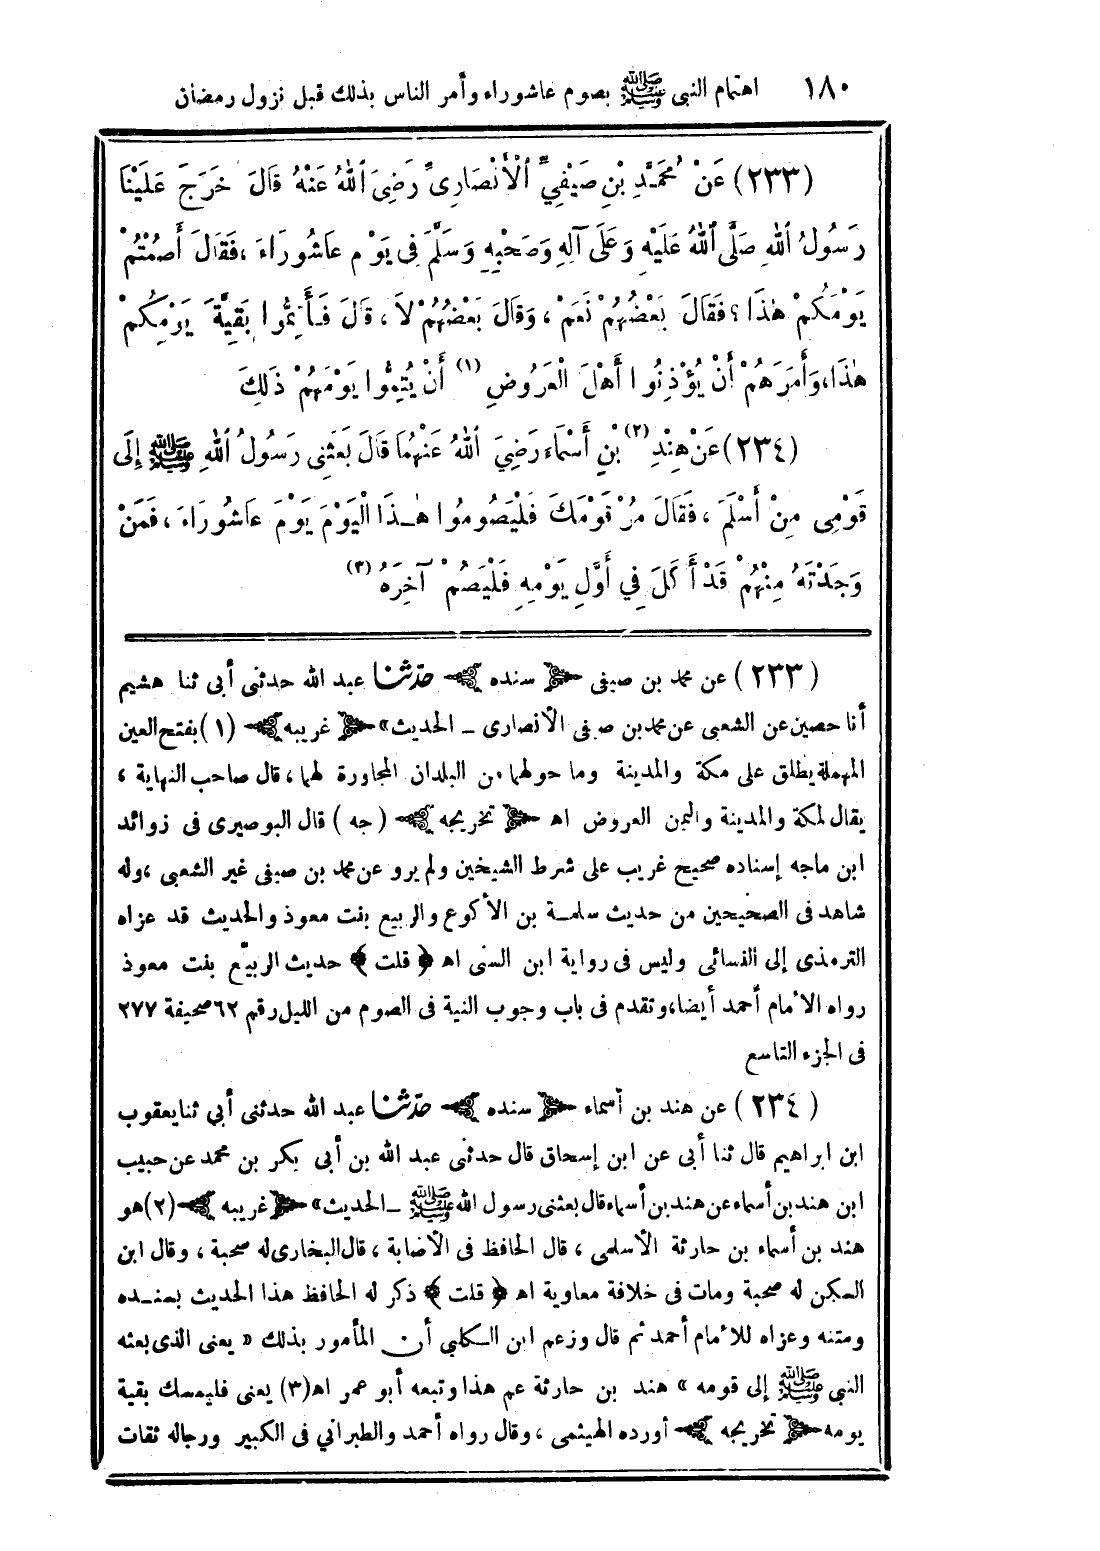 ١٨٠ اهتمام النبى ﷺ بصوم عاشوراء وأمر الناس بذلك قبل نزول رمضان
(٢٣٣) عَنْ مُحَمَّدِ بْنِ صَيْفِيٍّ ٱلْأَنْصَارِىِّ رَضِىَ ٱللهُ عَنْهُ قَالَ خَرَجَ عَلَيْنَا
رَسُولُ ٱللهِ صَلَّى ٱللهُ عَلَيْهِ وَعَلَى آلِهِ وَصَحْبِهِ وَسَلَّمَ فِى يَوْمِ عَاشُورَاءَ ، فَقَالَ أَصُمْتُمْ
يَوْمَكُمْ هٰذَا ؟ فَقَالَ بَعْضُهُمْ نَعَمْ ، وَقَالَ بَعْضُهُمْ لاَ ، قَالَ فَأَتِمُّوا بَقِيَّةَ يَوْمِكُمْ
هٰذَا، وَأَمَرَهُمْ أَنْ يُؤْذِنُوا أَهْلَ الْعَرُوضِ (١) أَنْ يُتِمُّوا يَوْمَهُمْ ذَلِكَ
(٢٣٤) عَنْ هِنْدِ (٢) بْنِ أَسْمَاءَ رَضِيَ ٱللهُ عَنْهُمَا قَالَ بَعَثَنِى رَسُولُ ٱللهِ ﷺ إِلَى
قَوْمِى مِنْ أَسْلَمَ ، فَقَالَ مُرْ قَوْمَكَ فَلْيَصُومُوا هٰـذَا الْيَوْمَ يَوْمَ عَاشُورَاءَ ، فَمَنْ
وَجَدْتَهُ مِنْهُمْ قَدْ أَكَلَ فِي أَوَّلِ يَوْمِهِ فَلْيَصُمْ آخِرَهُ (٣)
(٢٣٣) عن محمد بن صيفى ﴿ سنده ﴾ حدّثنا عبد الله حدثنى أبى ثنا هشيم
أنا حصين عن الشعبى عن محمد بن صيفى الأنصارى ـ الحديث» ﴿ غريبه ﴾ (١) بفتح العين
المهملة يطلق على مكة والمدينة وما حولهما من البلدان المجاورة لهما ، قال صاحب النهاية ،
يقال لمكة والمدينة واليمن العروض اهـ ﴿ تخريجه ﴾ (جه) قال البوصيرى فى زوائد
ابن ماجه إسناده صحيح غريب على شرط الشيخين ولم يرو عن محمد بن صيفى غير الشعبى ، وله
شاهد فى الصحيحين من حديث سلمـة بن الأكوع والربيع بنت معوذ والحديث قد عزاه
الترمذى إلى النسائى وليس فى رواية ابن السنى اهـ ﴿ قلت ﴾ حديث الربيّع بنت معوذ
رواه الأمام أحمد أيضا، وتقدم فى باب وجوب النية فى الصوم من الليل رقم ٦٢ صحيفة ٢٧٧
فى الجزء التاسع
(٢٣٤) عن هند بن أسماء ﴿ سنده ﴾ حدّثنا عبد الله حدثنى أبي ثنا يعقوب
ابن ابراهيم قال ثنا أبى عن ابن إسحاق قال حدثنى عبد الله بن أبى بكر بن محمد عن حبيب
ابن هند بن أسماء عن هند بن أسماء قال بعثنى رسول الله ﷺ ـ الحديث» ﴿ غريبه ﴾ (٢) هو
هند بن أسماء بن حارثة الأسلمى ، قال الحافظ فى الأصابة ، قال البخارى له صحبة ، وقال ابن
السكن له صحبة ومات فى خلافة معاوية اهـ ﴿ قلت ﴾ ذكر له الحافظ هذا الحديث بسنـده
ومتنه وعزاه للأمام أحمد ثم قال وزعم ابن الكلبي أن المأمور بذلك « يعنى الذى بعثه
النبى ﷺ إلى قومه » هند بن حارثة عم هذا وتبعه أبو عمر اهـ (٣) يعنى فليمسك بقية
يومه ﴿ تخريجه ﴾ أورده الهيثمى ، وقال رواه أحمد والطبراني فى الكبير ورجاله ثقات